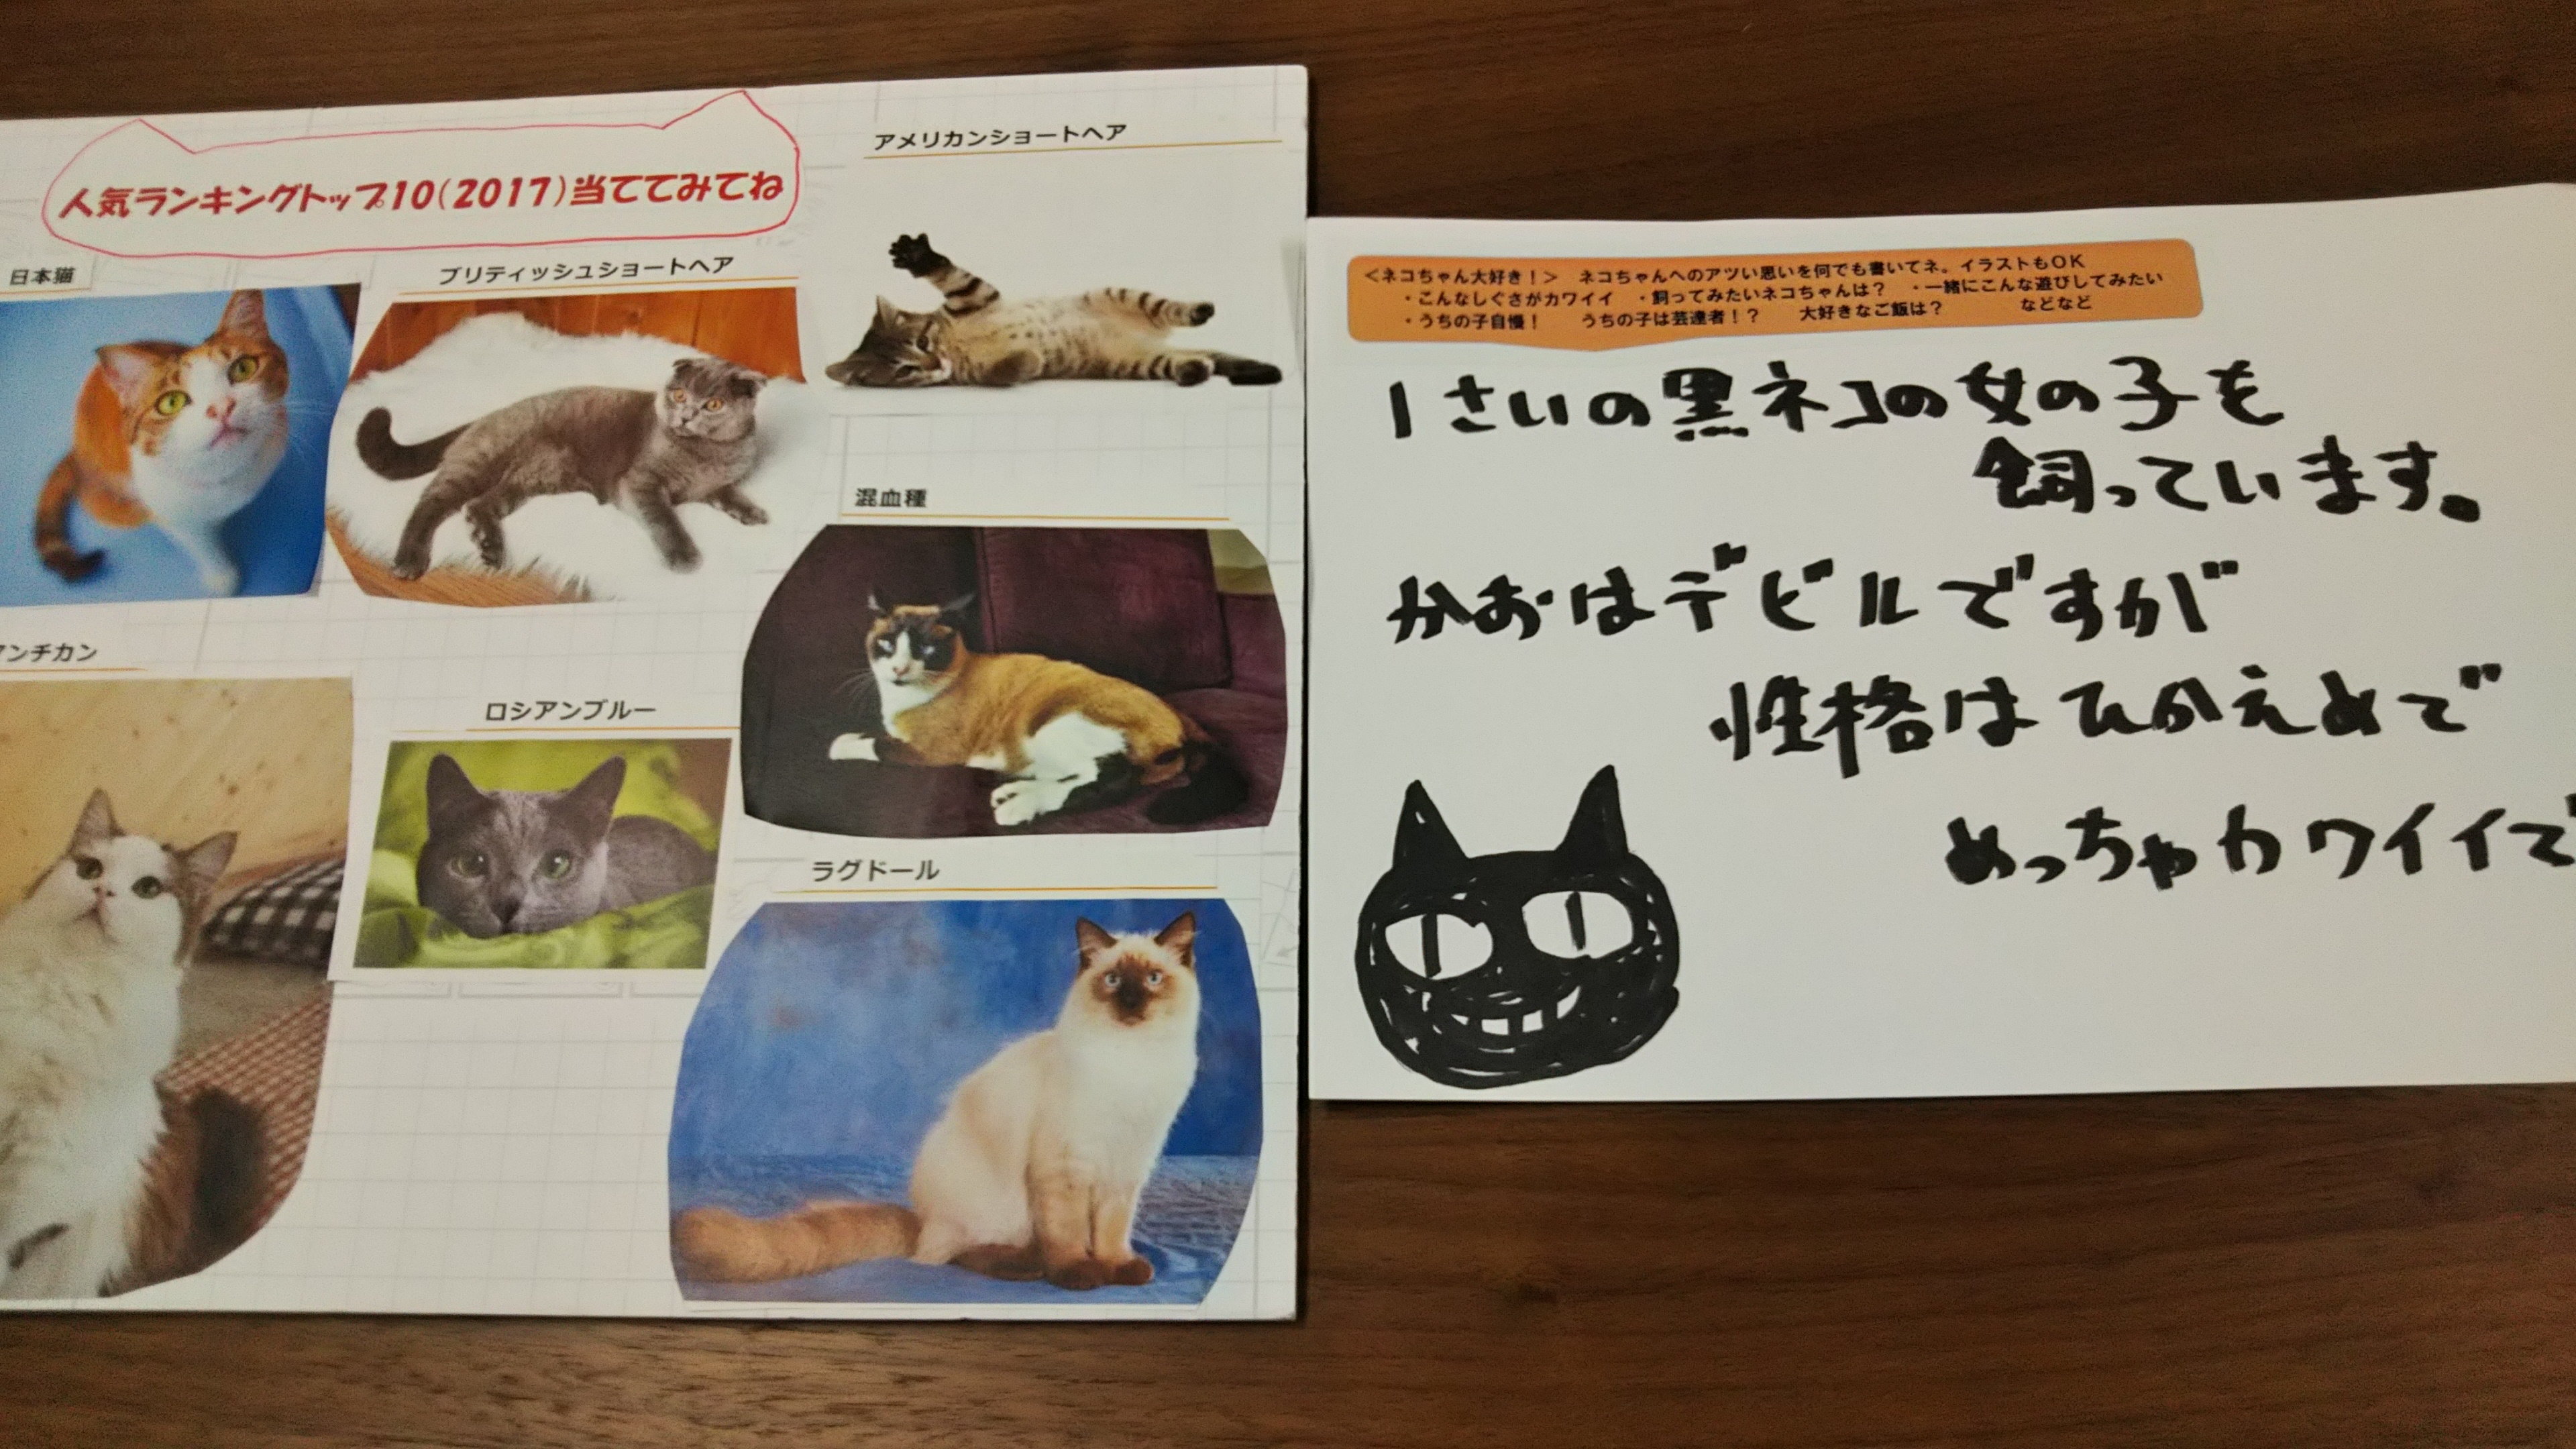 人気ランキングトップ10(2017)当ててみてね
アメリカンショートヘア
日本猫
ブリティッシュショートヘア
混血種
ンチカン
ロシアンブルー
ラグドール
<ネコちゃん大好き!> ネコちゃんへのアツい思いを何でも書いてネ。イラストもOK
・こんなしぐさがカワイイ ・飼ってみたいネコちゃんは? ・一緒にこんな遊びしてみたい
・うちの子自慢! うちの子は芸達者!? 大好きなご飯は? などなど
1さいの黒ネコの女の子を
飼っています。
かおはデビルですが
性格はひかえめで
めっちゃカワイイで